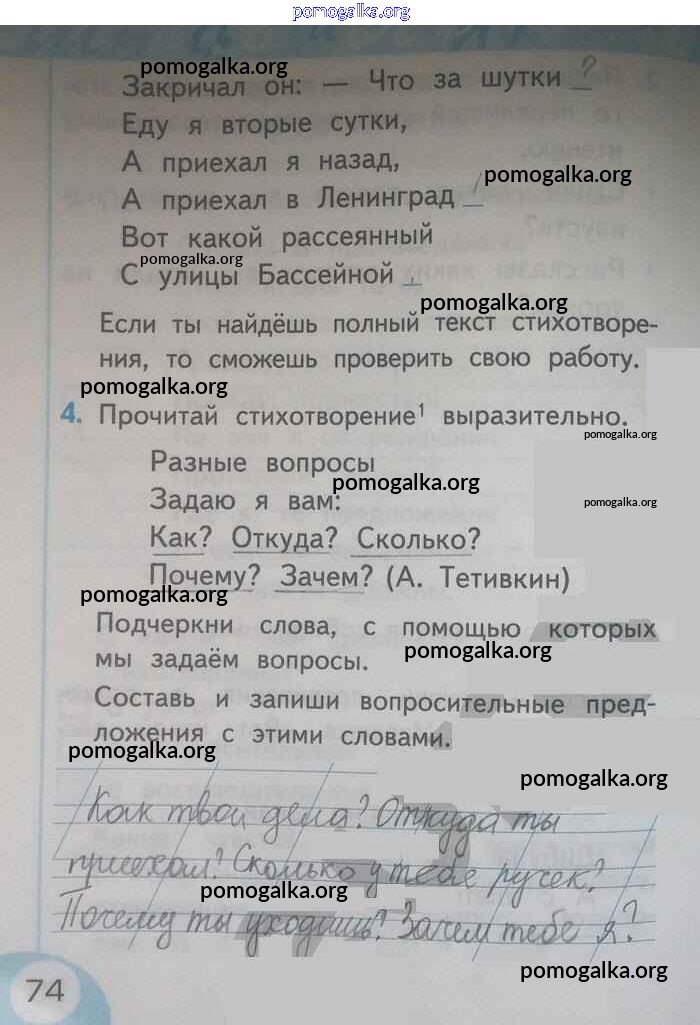 pomogalka.org
pomogalka.org
Закричал он: — Что за шутки ?
Еду я вторые сутки,
А приехал я назад,
pomogalka.org
А приехал в Ленинград !
Вот какой рассеянный
pomogalka.org
С улицы Бассейной .
pomogalka.org
Если ты найдёшь полный текст стихотворе-
ния, то сможешь проверить свою работу.
pomogalka.org
4. Прочитай стихотворение¹ выразительно.
pomogalka.org
Разные вопросы
pomogalka.org
Задаю я вам:
pomogalka.org
Как? Откуда? Сколько?
Почему? Зачем? (А. Тетивкин)
pomogalka.org
Подчеркни слова, с помощью которых
pomogalka.org
мы задаём вопросы.
Составь и запиши вопросительные пред-
ложения с этими словами.
pomogalka.org
pomogalka.org
Как твои дела? Откуда ты
приехал? Сколько у тебя ручек?
pomogalka.org
Почему ты уходишь? Зачем тебе я?
pomogalka.org
74